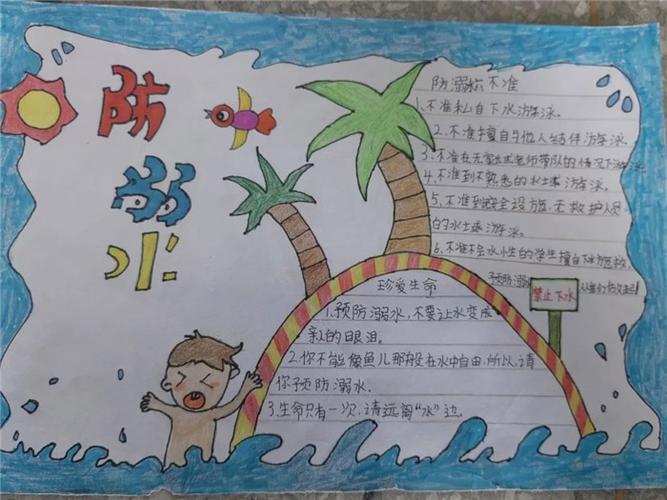 防溺水
防溺水六不准
1、不准私自下水游泳。
2、不准擅自与他人结伴游泳。
3、不准在无家长或老师带队的情况下游泳
4、不准到不熟悉的水域游泳。
5、不准到无安全设施、无救护人员
的水域游泳。
6、不准不会水性的学生擅自下水施救。
预防溺
禁止下水
珍爱生命
1、预防溺水，不要让水变成
亲人的眼泪。
2、你不能像鱼儿那般在水中自由，所以，请
你预防溺水。
3、生命只有一次，请远离“水”边。